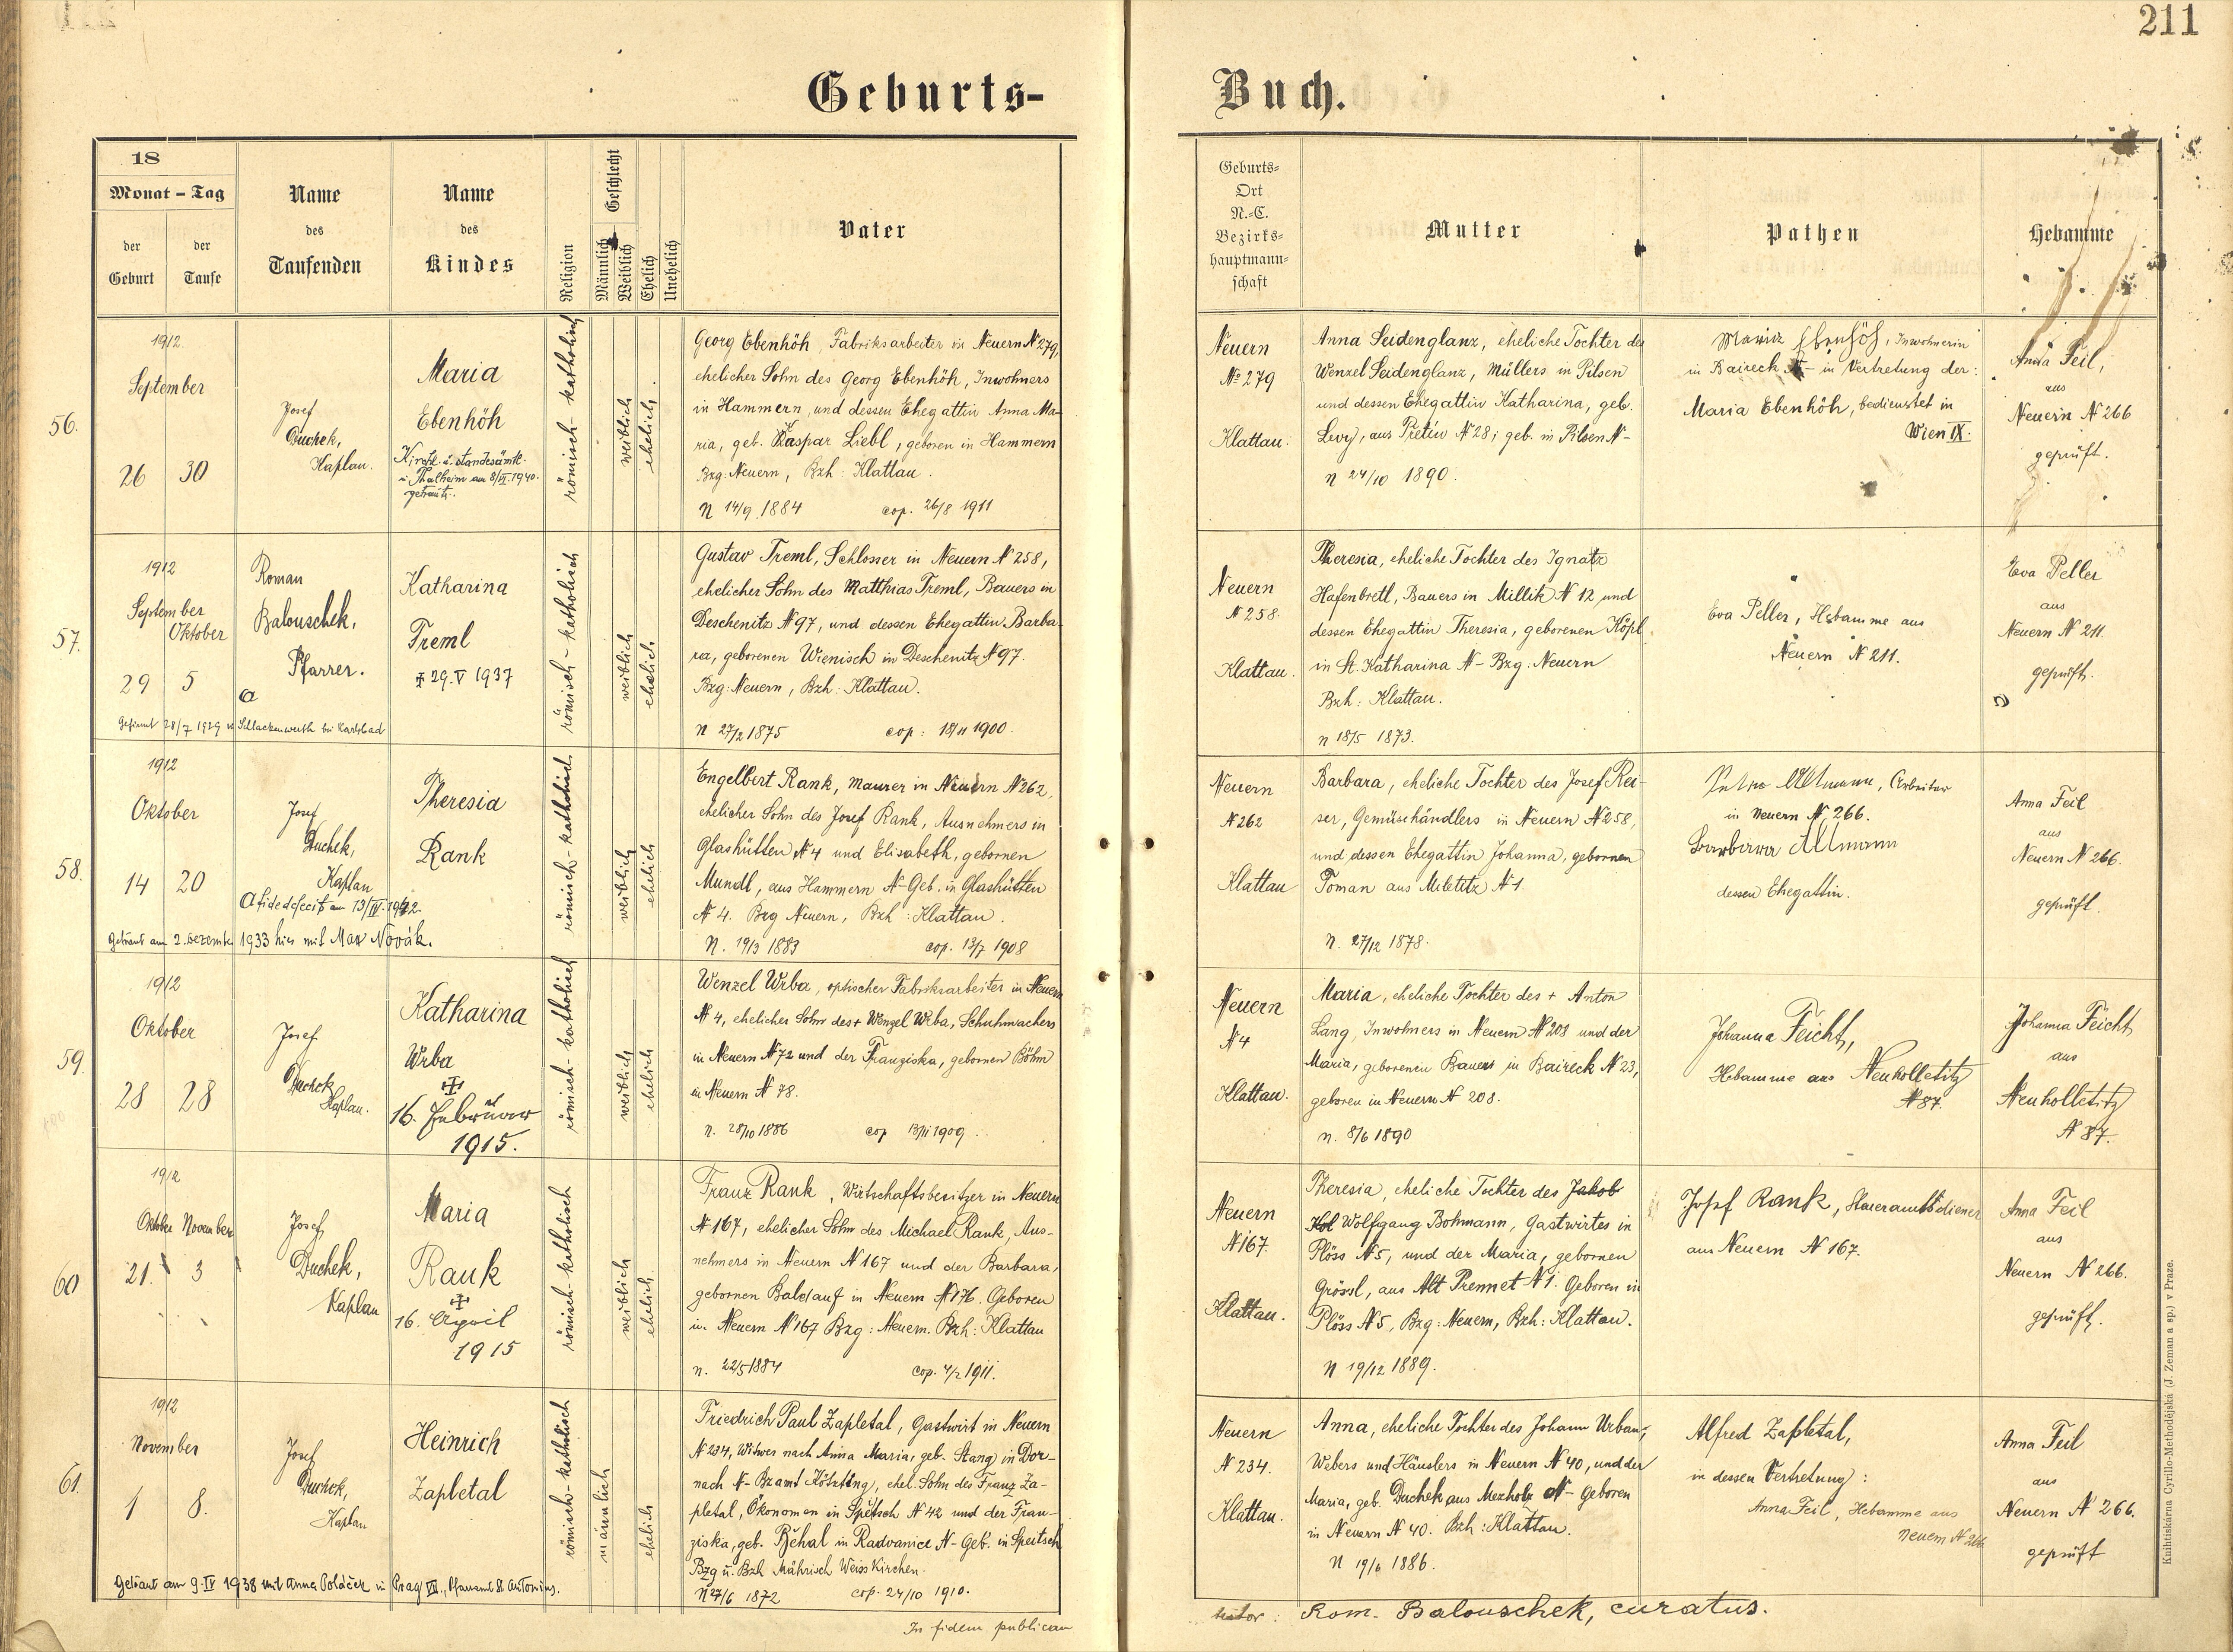 211
Geburts-
Buch.
18
Monat - Tag
der Geburt
der Taufe
Name des Taufenden
Name des Kindes
Religion
Geschlecht
Männlich
Weiblich
Ehelich
Unehelich
Vater
Geburts-
Ort
N.-C.
Bezirks-
hauptmann-
schaft
Mutter
Pathen
Hebamme
56.
1912.
September
26 30
Josef
Duchek,
Kaplan.
Maria
Ebenhöh
Kirchl. u. standesämtl.
in Thalheim am 8/VI. 1940.
getraut.
römisch-katholisch
weiblich
ehelich
Georg Ebenhöh, Fabriksarbeiter in Neuern N 279,
ehelicher Sohn des Georg Ebenhöh, Inwohners
in Hammern, und dessen Ehegattin Anna Ma-
ria, geb. Kaspar Liebl, geboren in Hammern
Bzg: Neuern, Bzh: Klattau.
N 14/9 1884 cop. 26/8 1911
Neuern
No 279
Klattau.
Anna Seidenglanz, eheliche Tochter des
Wenzel Seidenglanz, Müllers in Pilsen
und dessen Ehegattin Katharina, geb.
Levy, aus Pretin N 28; geb. in Pilsen N-
n 24/10 1890.
Maria Ebenhöh, Inwohnerin
in Baireck N- in Vertretung der:
Maria Ebenhöh, bedienstet in
Wien IX.
Anna Feil,
aus
Neuern N 266
geprüft.
57.
1912
September
Oktober
29 5
Roman
Balouschek,
Pfarrer.
Gefirmt 28/7 1929 in Schlackenwerth bei Karlsbad
Katharina
Treml
29. V 1937
römisch-katholisch
weiblich
ehelich
Gustav Treml, Schlosser in Neuern N 258,
ehelicher Sohn des Matthias Treml, Bauers in
Deschenitz N 97, und dessen Ehegattin Barba-
ra, geborenen Wienisch in Deschenitz N 97.
Bzg: Neuern, Bzh: Klattau.
n 27/2 1875 cop: 18/11 1900.
Neuern
N 258.
Klattau.
Theresia, eheliche Tochter des Ignatz
Hafenbretl, Bauers in Millik N 12 und
dessen Ehegattin Theresia, geborenen Köpl
in St. Katharina N- Bzg: Neuern
Bzh: Klattau.
n 18/5 1873.
Eva Peller, Hebamme aus
Neuern N 211.
Eva Peller
aus
Neuern N 211.
geprüft.
58.
1912
Oktober
14 20
Josef
Duchek,
Kaplan
A fide defecit am 13/IV. 1942.
Getraut am 2. Dezember 1933 hier mit Max Novák.
Theresia
Rank
römisch-katholisch
weiblich
ehelich
Engelbert Rank, Maurer in Neuern N 262,
ehelicher Sohn des Josef Rank, Ausnehmers in
Glashütten N 4 und Elisabeth, gebornen
Mundl, aus Hammern N- Geb. in Glashütten
N 4. Bzg Neuern, Bzh: Klattau.
N. 19/3 1883 cop. 13/7 1908
Neuern
N 262
Klattau
Barbara, eheliche Tochter des Josef Rei-
ser, Gemüsehändlers in Neuern N 258,
und dessen Ehegattin Johanna, gebornen
Toman aus Miletitz N 1.
n. 27/12 1878.
Altmann, Arbeiter
in Neuern N 266.
Barbara Altmann
dessen Ehegattin.
Anna Feil
aus
Neuern N 266.
geprüft.
59.
1912
Oktober
28 28
Josef
Duchek
Kaplan.
Katharina
Wrba
16. Februar
1915.
römisch-katholisch
weiblich
ehelich
Wenzel Wrba, optischer Fabriksarbeiter in Neuern
N 4, ehelicher Sohn des + Wenzel Wrba, Schuhmachers
in Neuern N 72 und der Franziska, gebornen Böhm
in Neuern N 78.
n. 28/10 1886 cop 13/11 1909.
Neuern
N 4
Klattau.
Maria, eheliche Tochter des + Anton
Lang, Inwohners in Neuern N 208 und der
Maria, geborenen Bauers in Baireck N 23,
geboren in Neuern N 208.
n. 8/6 1890
Johanna Feicht,
Hebamme aus Neukolletitz
N 87.
Johanna Feicht
aus
Neukolletitz
N 87.
60
1912
Oktober November
21. 3
Josef
Duchek,
Kaplan
Maria
Rank
16. April
1915
römisch-katholisch
weiblich
ehelich
Franz Rank, Wirtschaftsbesitzer in Neuern
N 167, ehelicher Sohn des Michael Rank, Aus-
nehmers in Neuern N 167 und der Barbara,
gebornen Baldauf in Neuern N 176. Geboren
in Neuern N 167 Bzg: Neuern. Bzh: Klattau
n. 22/5 1884 cop. 4/2 1911.
Neuern
N 167.
Klattau.
Theresia, eheliche Tochter des Jakob
Wolfgang Bohmann, Gastwirtes in
Plöss N 5, und der Maria, gebornen
Grössl, aus Alt Prennet N 1. Geboren in
Plöss N 5, Bzg: Neuern, Bzh: Klattau.
N 19/12 1889.
Josef Rank, Steueramtsdiener
aus Neuern N 167.
Anna Feil
aus
Neuern N 266.
geprüft.
61.
1912
November
1 8.
Josef
Duchek,
Kaplan
Getraut am 9. IV 1938 mit Anna Poláček in Prag VII., Pfarramt St. Antonius.
Heinrich
Zapletal
römisch-katholisch
männlich
ehelich
Friedrich Paul Zapletal, Gastwirt in Neuern
N 234, Witwer nach Anna Maria, geb. Stang in Dor-
nach N- Bzamt Kötzting, ehel. Sohn des Franz Za-
pletal, Ökonomen in Speitsch N 42 und der Fran-
ziska, geb. Běhal in Radvanice N- Geb. in Speitsch
Bzg u. Bzh Mährisch Weisskirchen.
N 27/6 1872 cop. 24/10 1910.
Neuern
N 234.
Klattau.
Anna, eheliche Tochter des Johann Urban,
Webers und Häuslers in Neuern N 40, und der
Maria, geb. Duchek aus Mexholz N- Geboren
in Neuern N 40. Bzh: Klattau.
N 19/6 1886.
Alfred Zapletal,
in dessen Vertretung:
Anna Feil, Hebamme aus
Neuern N 266
Anna Feil
aus
Neuern N 266.
geprüft
In fidem publicam
Rom. Balouschek, curatus.
Knihtiskárna Cyrillo-Methodějská (J. Zeman a sp.) v Praze.